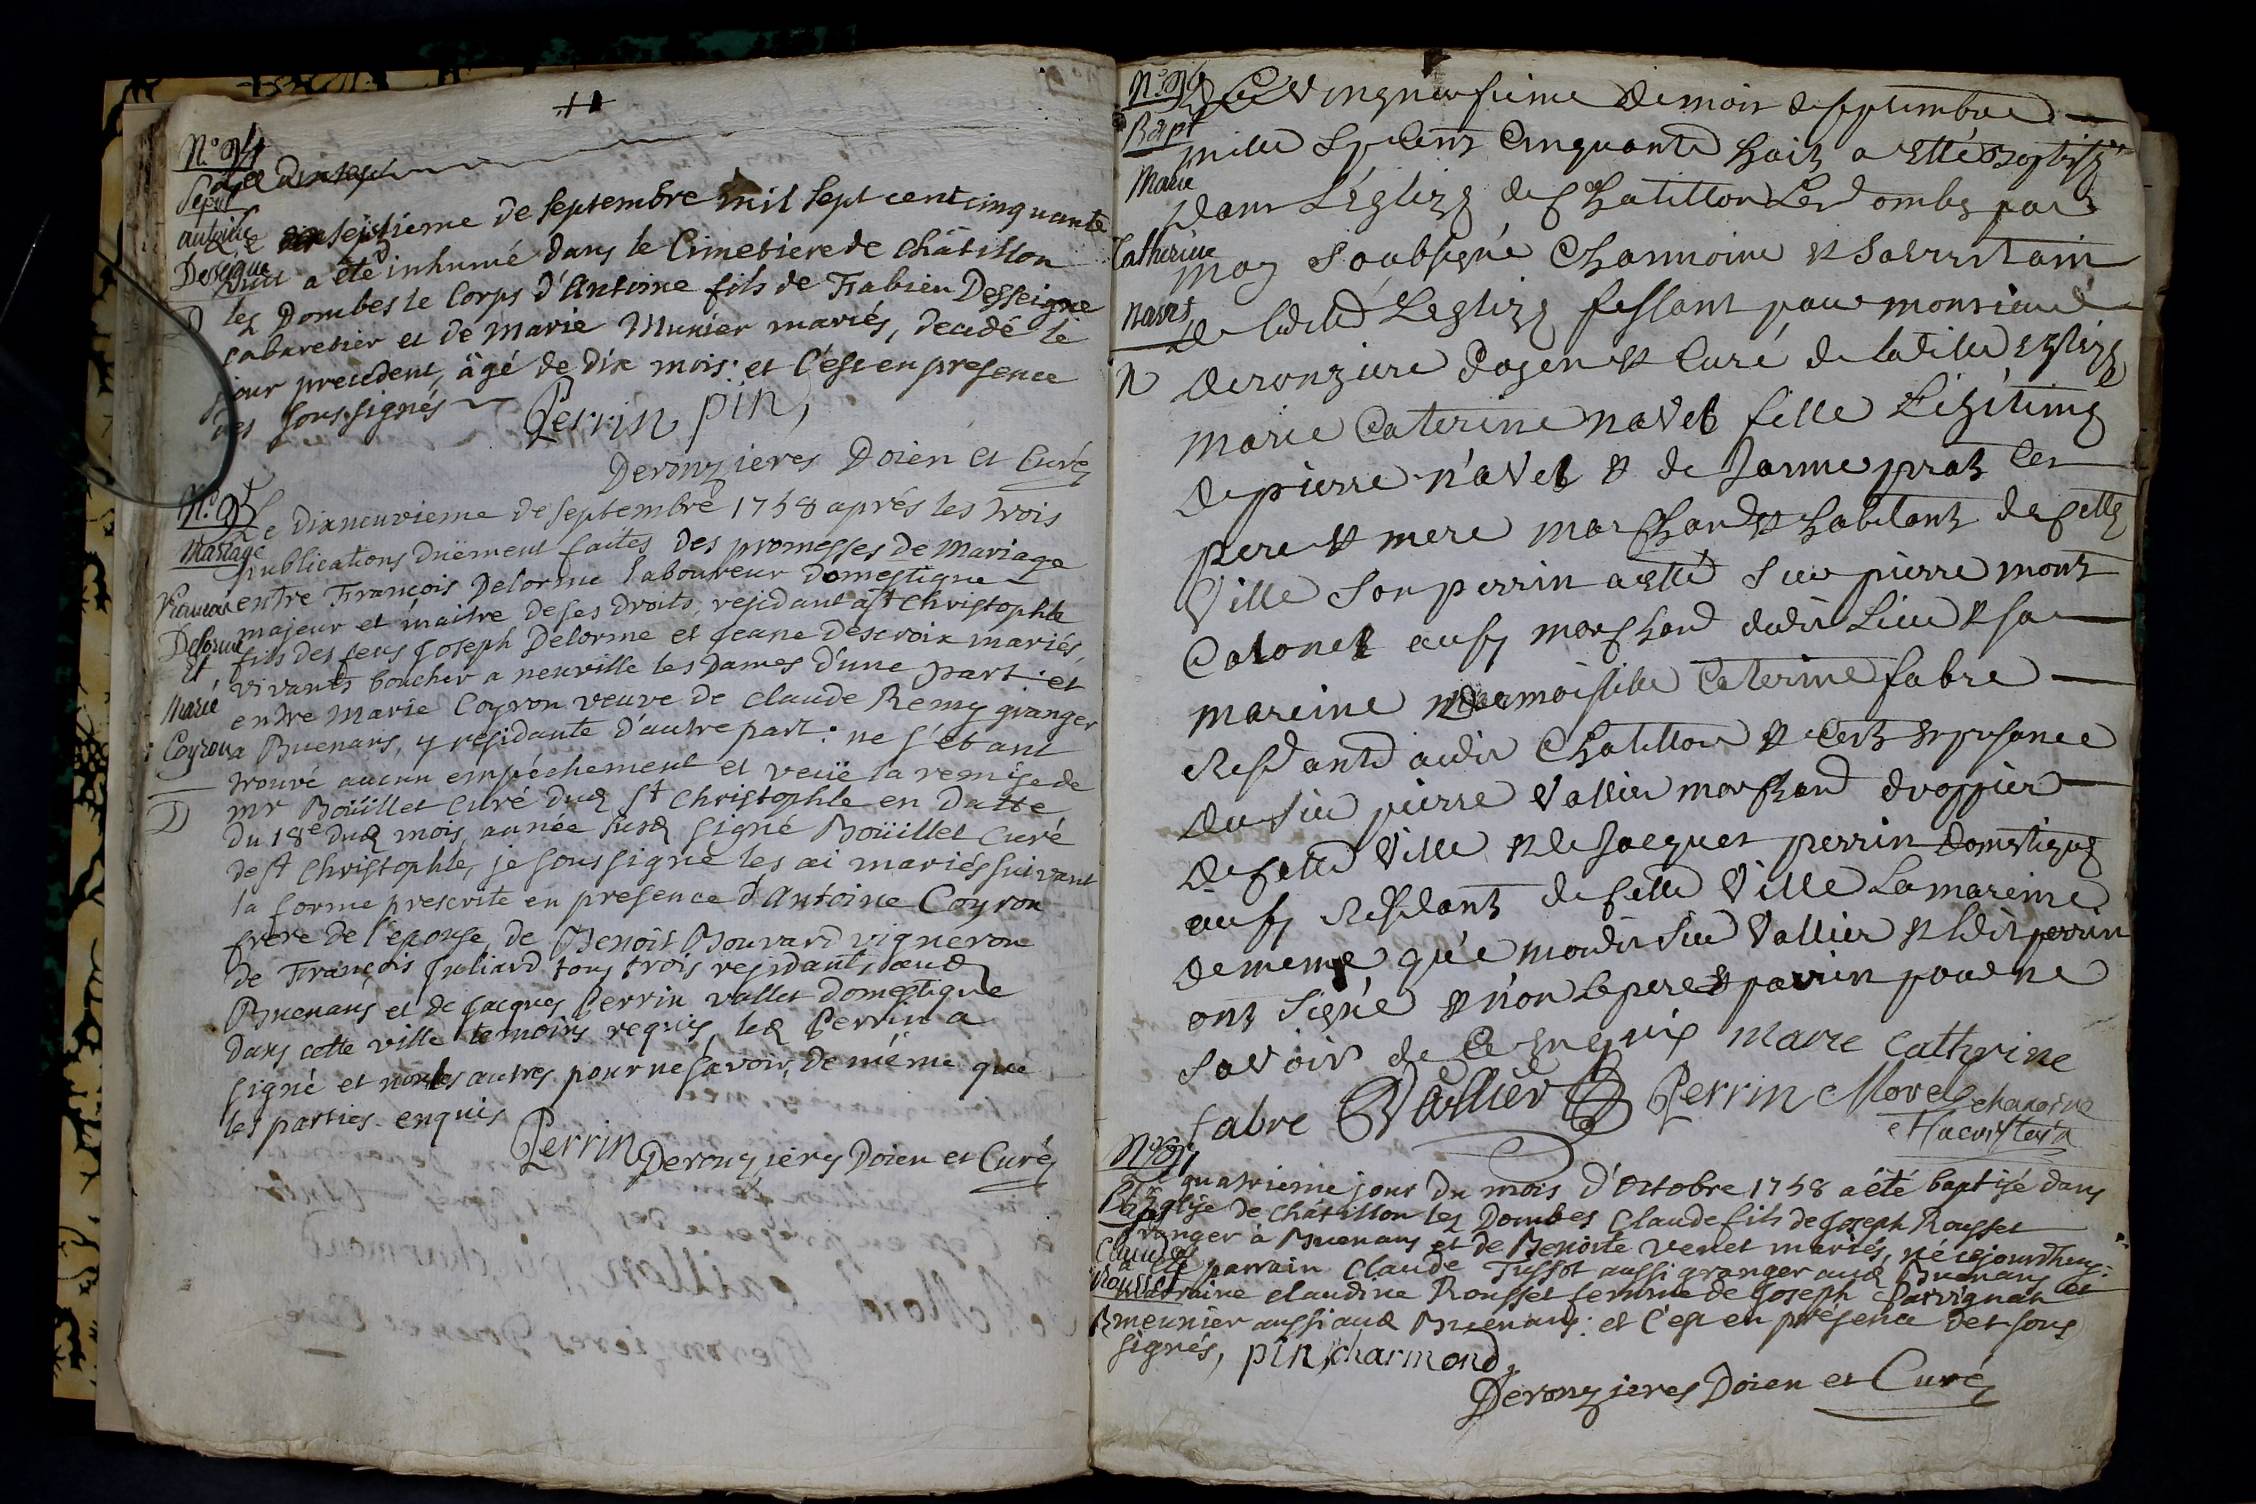 N.° 94
Sepul
antoine
Desseigne
D
Le dixseptieme de Septembre mil Sept cent cinquante
huit a été inhumé dans le Cimetiere de châtillon
lez Dombes le Corps d'Antoine fils de Fabien Desseigne
cabaretier et de Marie Munier mariés, decedé le
jour precedent, âgé de Dix mois: et C'est en presence
des soussignés
Perrin pin,
Deronzieres Doien et Curé
N.° 95
Mariage
François
Delorme
et
Marie
Coyron
D
Le Dixneuvieme de Septembre 1758 aprés les trois
publications düement faites des promesses de Mariage
entre François Delorme laboureur domestique
majeur et maitre de ses droits, residant a st Christophle
fils des feus Joseph Delorme et Jeane Descroix mariés,
vivants boucher a neuville les Dames d'une part: et
entre Marie Coyron veuve de Claude Remy granger
a Buenans, y residante d'autre part: ne s'étant
trouvé aucun empéchement et veuë la remise de
mr Boüillet Curé dud St Christophle en Datte
du 18e dud mois, année susd signé Boüillet Curé
de st Christophle, je soussigné les ai mariés suivant
la forme prescrite en presence d'Antoine Coyron
frere de l'epouse, de Benoit Bouvard vigneron
de François Juliard tous trois residants aud
Buenans et de Jacques Perrin vallet domestique
dans cette ville temoins requis, led Perrin a
signé et non les autres pour ne savoir, de méme que
les parties enquis
Perrin Deronzieres Doien et Curé
N.° 96
Bapt
Marie
Catherine
Navet
N
Le Vingneufieme de mois de septembre
mille Sept Cent Cinquante huit a etté Baptisé
dans L'églize de Chatillon Les dombe par
moy Soubsigné Channoine et Sacristain
de ladite Leglize fessant pour monsieur
deronziere Doyen et Curé de ladite Eglize
Marie Caterine navet fille Légitime
de pierre navet et de Janne prat Ces
pere et mere marchand et habitant de cette
Ville Son perrin a etté Sieur pierre mont
Colonel aussy marchand dudit Lieu et sa
mareine Mademoiselle Caterine fabre
Residante audit Chatillon et Cest en presance
du Sieur pierre Vallier marchand drappier
de cette Ville et de Jacques perrin Domestique
aussy Residant de cette Ville La mareine
de meme que mondit Sieur Vallier et ledit perrin
ont Signé et non le pere et parrin pour ne
Savoir de Ce Enquis marie catherine
fabre Vallier Perrin Morel chanoine
et sacristain
N° 97
Bap
Claude
Rousset
Le quatrieme jour du mois d'Octobre 1758 a été baptisé dans
l'Eglise de Châtillon lez Dombes Claude fils de Joseph Rousset
granger à Buenans et de Benoite Venet mariés, né cejourdhuy:
a été parrain Claude Tissot aussi granger aud Buenans et
marraine claudine Rousset femme de Joseph Parvignan
meunier aussi aud Buenans: et C'est en présence des sous
signés, pin, charmond,
Deronzieres Doien et Curé